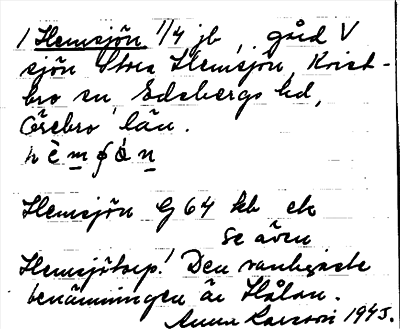 1 Hemsjön 1/4 jb, gård V
sjön Stora Hemsjön, Krist-
bro sn Edsbergs hd,
Örebro län.
hèmʃón

Hemsjön G 64 kb ek
Se även
Hemsjötorp! Den vanligaste
benämningen är Hålan.
Anna Larsson 1945.